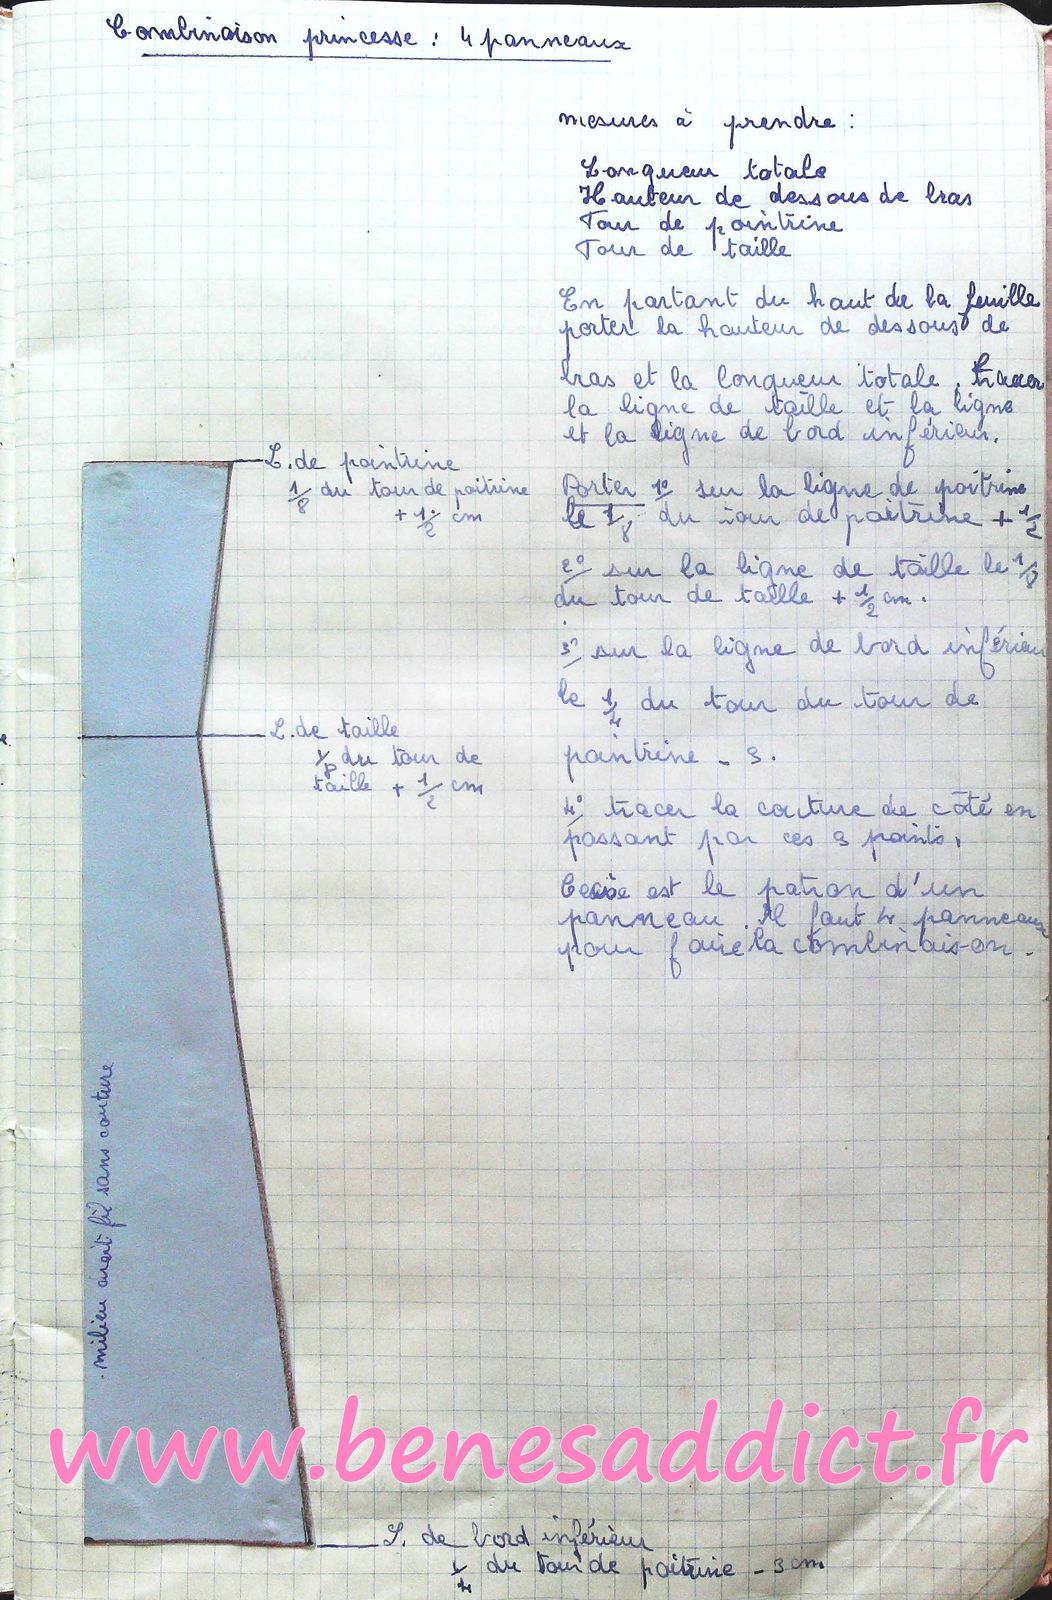 Combinaison princesse : 4 panneaux
mesures à prendre :
Longueur totale
Hauteur de dessous de bras
Tour de pointrine
Tour de taille
En partant du haut de la feuille
porter la hauteur de dessous de
bras et la longueur totale. tracer
la ligne de taille et la ligne
et la ligne de bord inférieur.
Porter 1° sur la ligne de poitrine
le 1/8 du tour de poitrine + 1/2
2° sur la ligne de taille le 1/8
du tour de taille + 1/2 cm.
3° sur la ligne de bord inférieur
le 1/4 du tour du tour de
pointrine - 3.
4° tracer la couture de côté en
passant par ces 3 points.
est le patron d'un
panneau. Il faut 4 panneaux
pour faire la combinais-on.
L. de pointrine
1/8 du tour de poitrine
+ 1/2 cm
L. de taille
1/8 du tour de
taille + 1/2 cm
milieu droit fil sans couture
www.benesaddict.fr
L. de bord inférieur
1/4 du tour de poitrine - 3 cm